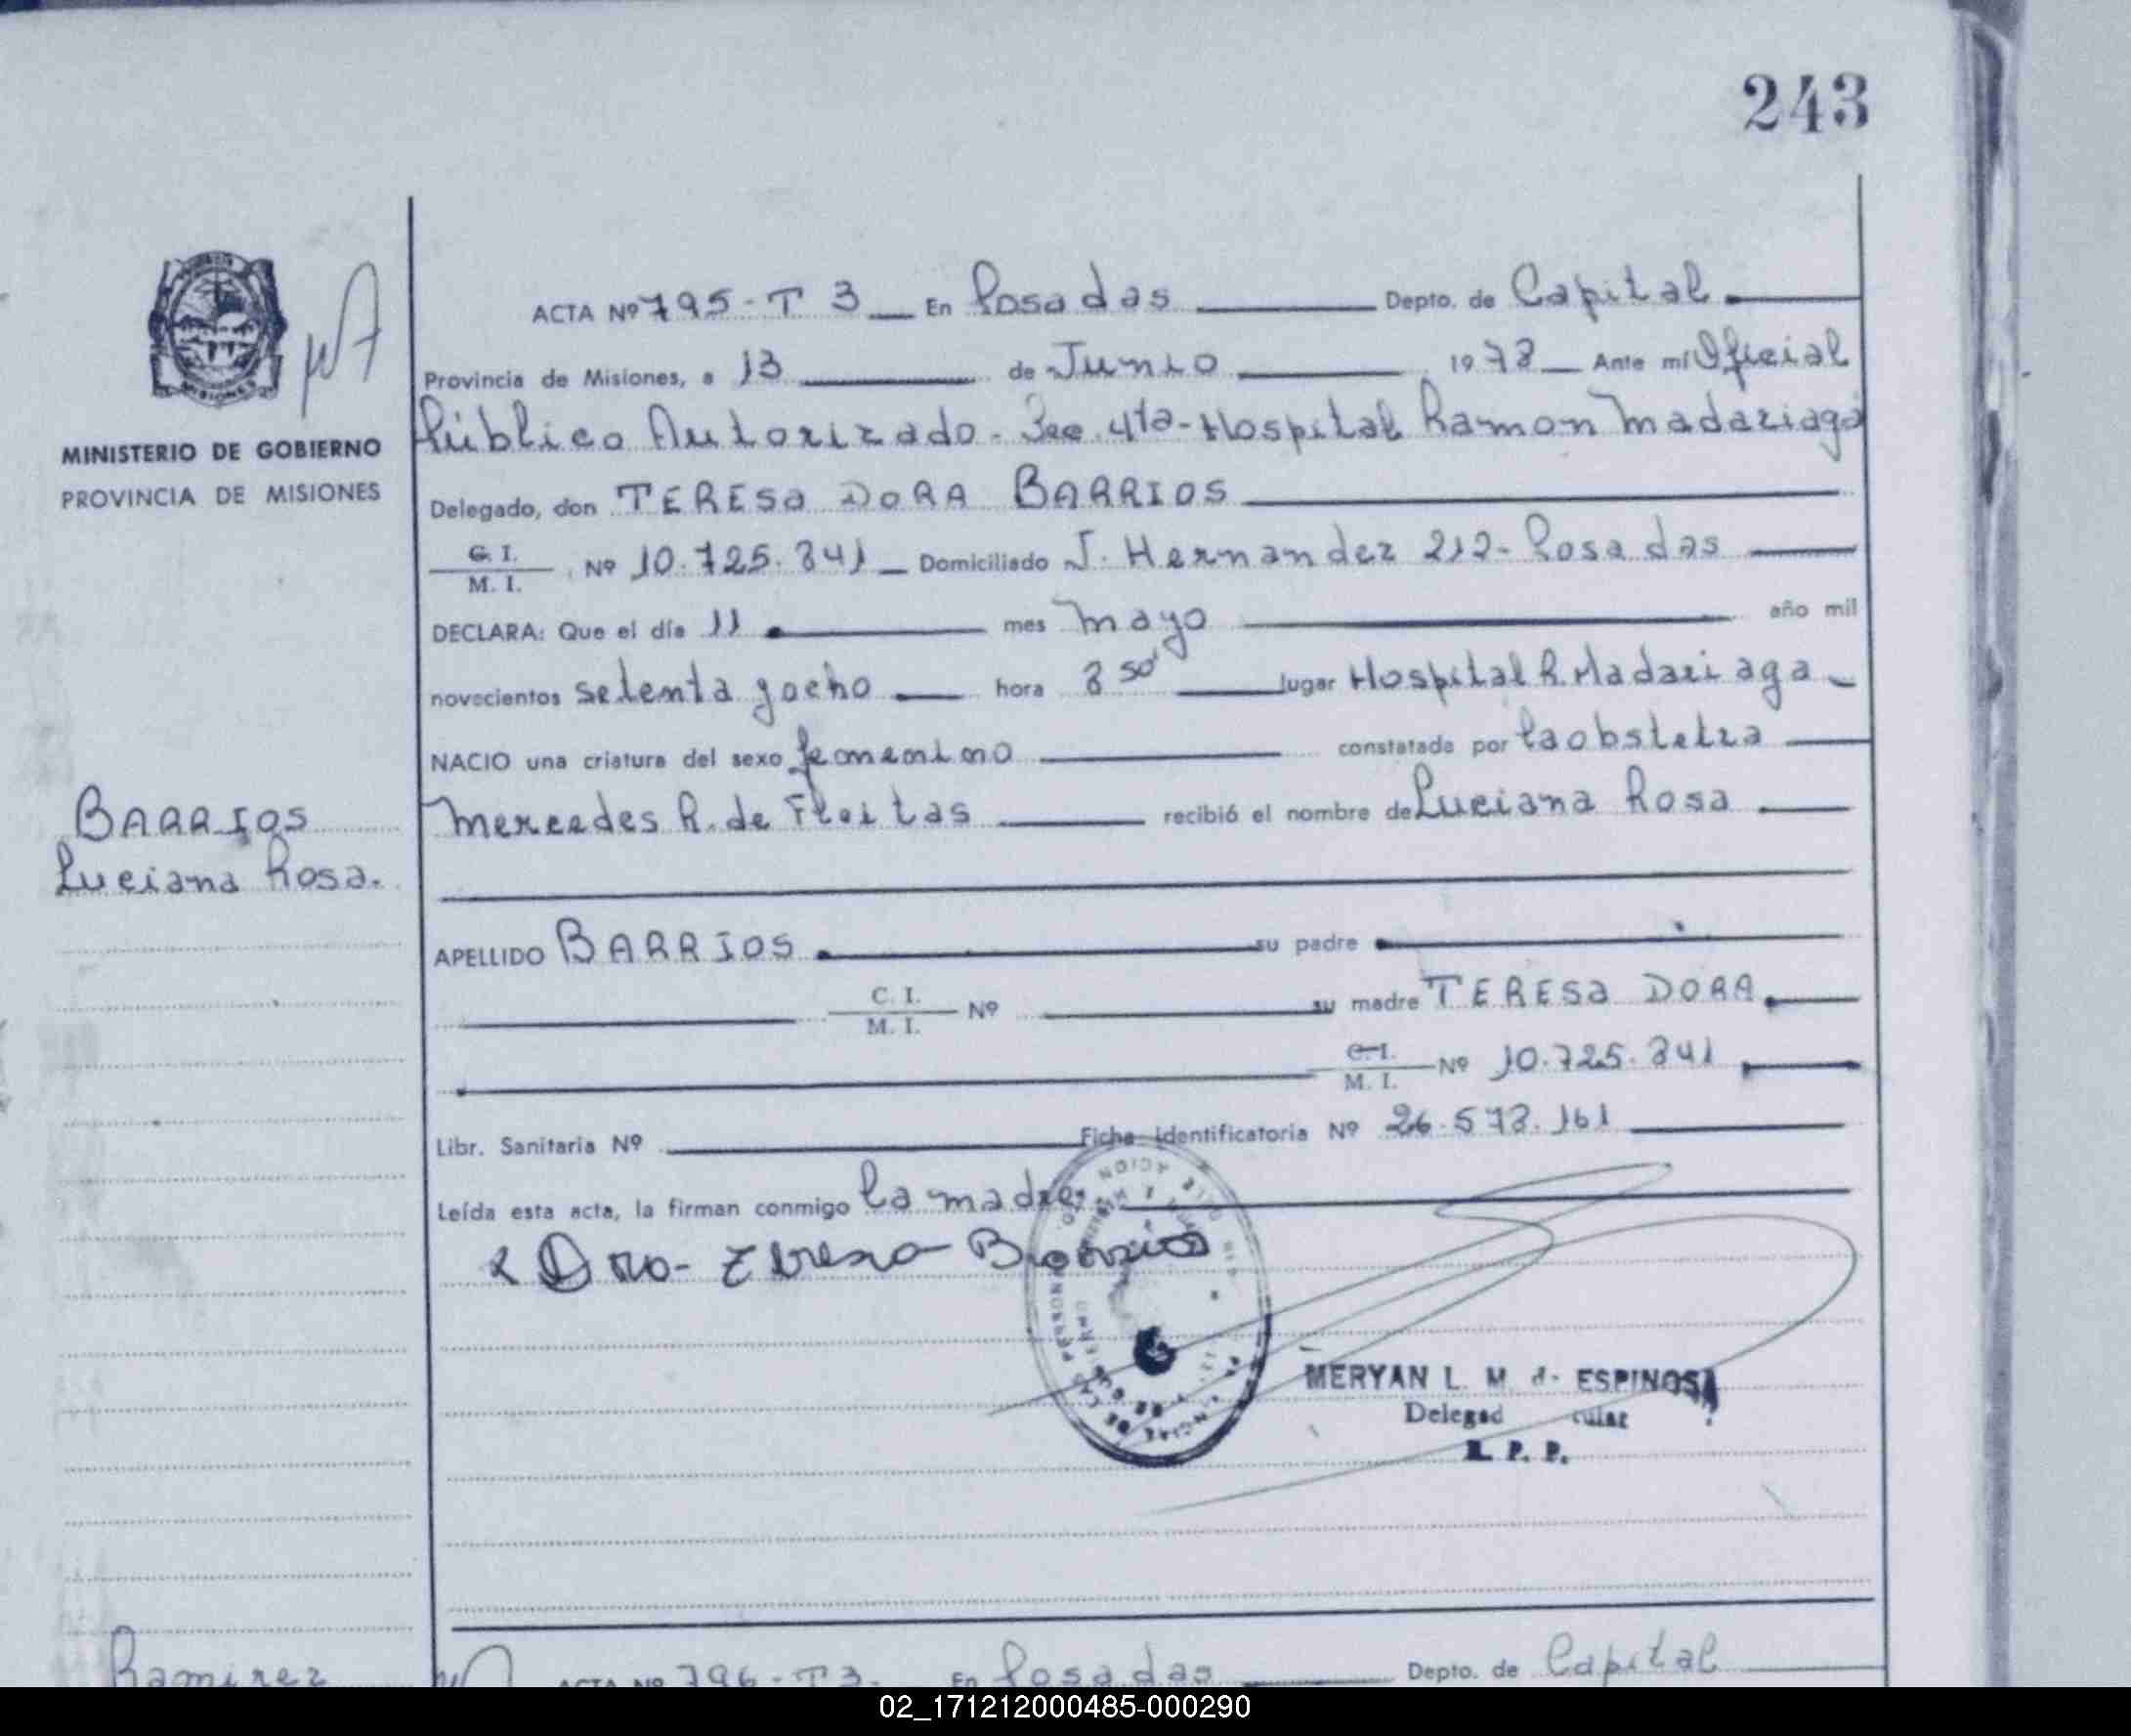 243
ACTA Nº 795-T 3 En Posadas Depto. de Capital
Provincia de Misiones, a 13 de Junio 1978 Ante mí Oficial
Público Autorizado - Sec. 4ta - Hospital Ramon Madariaga
MINISTERIO DE GOBIERNO
PROVINCIA DE MISIONES
Delegado, don TERESA DORA BARRIOS
C. I. M. I. Nº 10.725.841 Domiciliado J. Hernandez 212 - Posadas
DECLARA: Que el día 11 mes mayo año mil
novecientos setenta y ocho hora 8 50' lugar Hospital R. Madariaga
NACIO una criatura del sexo femenino constatada por la obstetra
BARRIOS
Luciana Rosa.
Mercedes R. de Fleitas recibió el nombre de Luciana Rosa
APELLIDO BARRIOS su padre
C. I. M. I. Nº su madre TERESA DORA
C. I. M. I. Nº 10.725.841
Libr. Sanitaria Nº Ficha Identificatoria Nº 26.578.161
Leída esta acta, la firman conmigo la madre
MERYAN L. M. d. ESPINOSA
Delegad
P. P.
Ramirez
ACTA Nº 796-T3. En Posadas Depto. de Capital
02_171212000485-000290